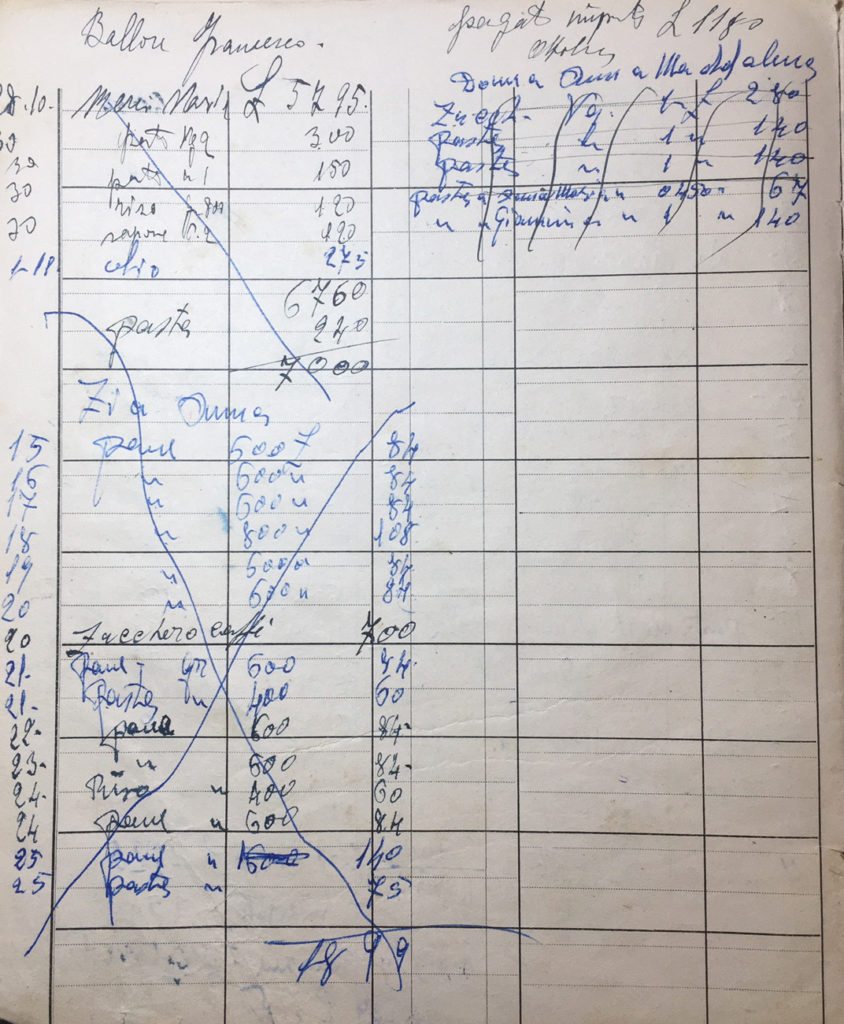 Ballore Francesco.
28.10. Merci Varie £ 5795.
30 pasta Kg 2 300
30 pasta " 1 150
30 riso 120
30 sapone N. 2 120
1-11. olio 275
6760
pasta 240
7000
Zia Anna
15 pane 600 84
16 " 600 " 84
17 " 600 " 84
18 " 800 " 108
19 " 600 " 84
20 " 600 " 84
20 Zucchero caffè 700
21- pane gr 600 84
21- Pasta " 400 60
22- pane 600 84-
23- " 600 84-
24- Riso " 400 60
24 pane " 600 84
25 pane " 140
25 pasta " 75
1899
pagato importo £ 1180
Ottobre
Donna Anna Maddalena
Zucch. Kg. 1 £ 280
pasta " 1 " 140
pasta " 1 " 140
pasta a Anna Maria " 0450- 67
" " Giannina " 1 " 140